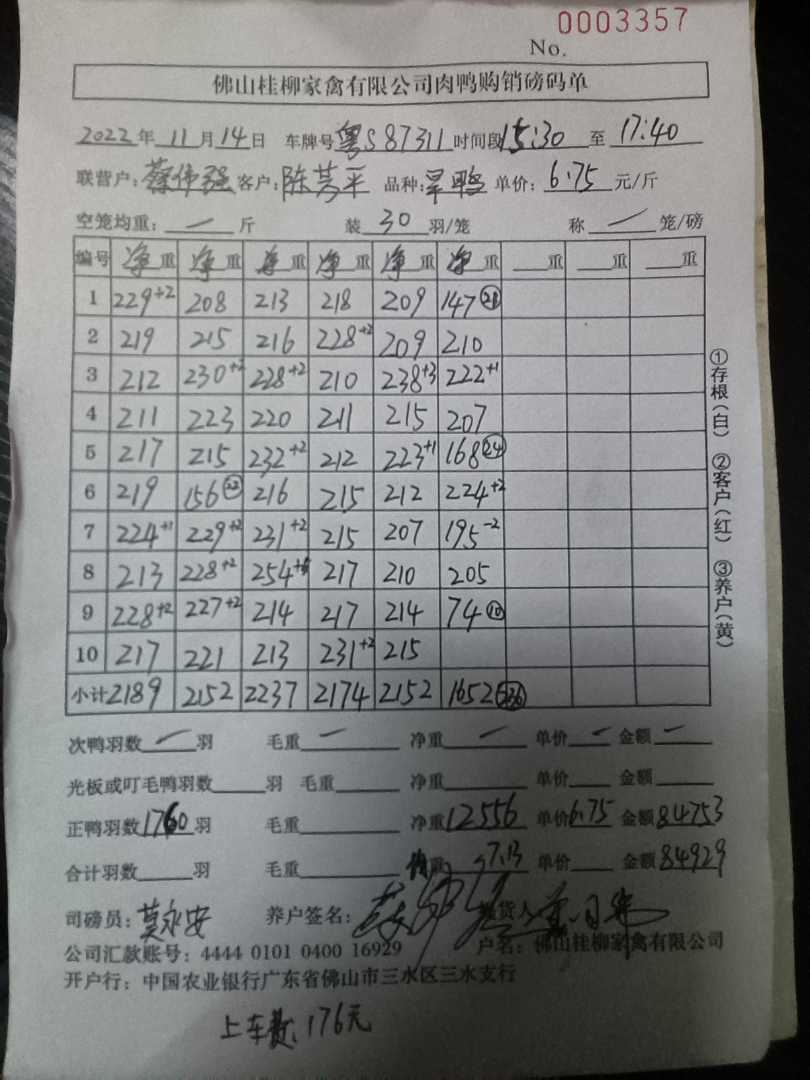 0003357
No.
佛山桂柳家禽有限公司肉鸭购销磅码单
2022年 11月 14日 车牌号粤S87311时间段15:30 至 17:40
联营户:蔡伟强 客户:陈芳平 品种:旱鸭 单价:6.75 元/斤
空笼均重:一 斤 装 30 羽/笼 称 一 笼/磅
编号 净重 净重 净重 净重 净重 净重 重 重 重
1 229+2 208 213 218 209 147(21)
2 219 215 216 228+2 209 210
3 212 230+2 228+2 210 238+3 222+1
4 211 223 220 211 215 207
5 217 215 232+2 212 223+1 168(24)
6 219 156(22) 216 215 212 224+2
7 224+1 229+2 231+2 215 207 195-2
8 213 228+2 254 217 210 205
9 228+2 227+2 214 217 214 74(10)
10 217 221 213 231+2 215
小计 2189 2152 2237 2174 2152 1652(236)
①存根(白) ②客户(红) ③养户(黄)
次鸭羽数 一 羽 毛重 一 净重 一 单价 一 金额 一
光板或叮毛鸭羽数 羽 毛重 净重 单价 金额
正鸭羽数1760 羽 毛重 净重12556 单价6.75 金额84753
合计羽数 羽 毛重 均重 7.13 单价 金额84929
司磅员:莫永安 养户签名: 提货人
公司汇款账号:4444 0101 0400 16929 户名:佛山桂柳家禽有限公司
开户行:中国农业银行广东省佛山市三水区三水支行
上车费:176元